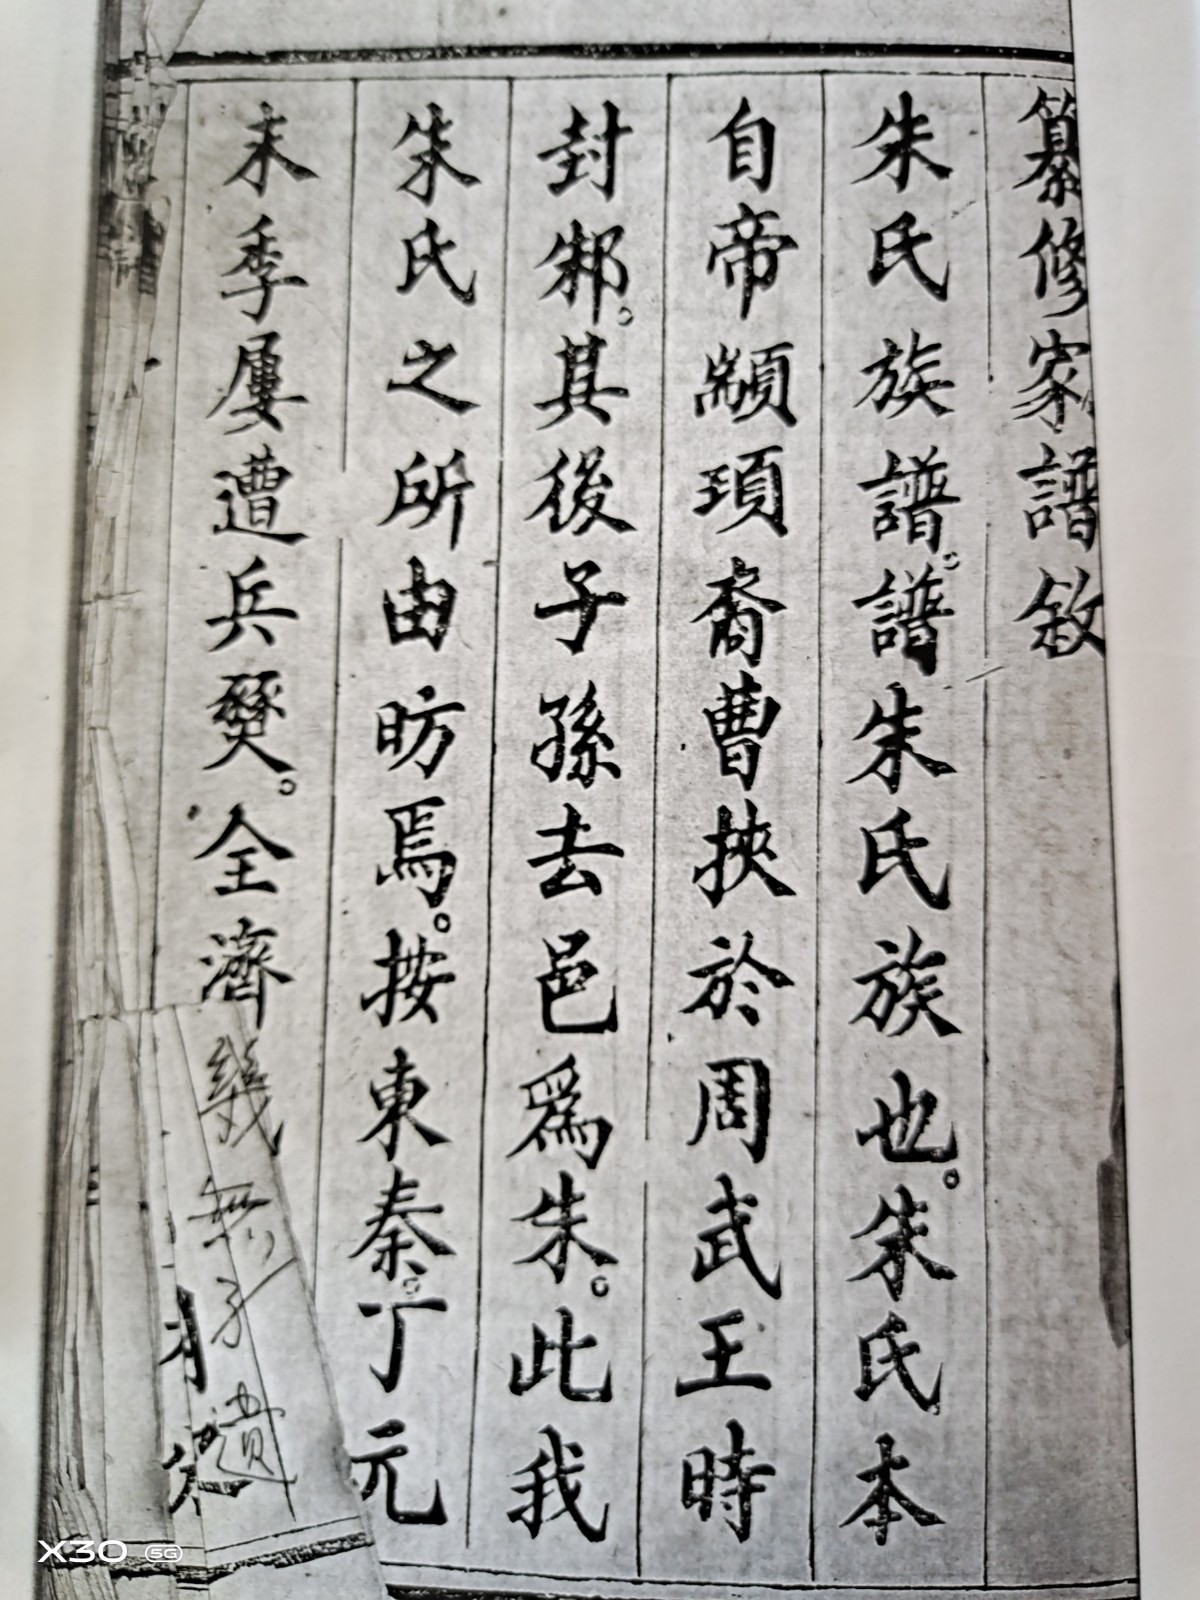 纂修家譜敘
朱氏族譜。譜朱氏族也。朱氏本
自帝顓頊裔曹挾於周武王時
封邾。其後子孫去邑爲朱。此我
朱氏之所由昉焉。按東秦。丁元
末季屢遭兵燹。全濟幾無孑遺
X30 5G